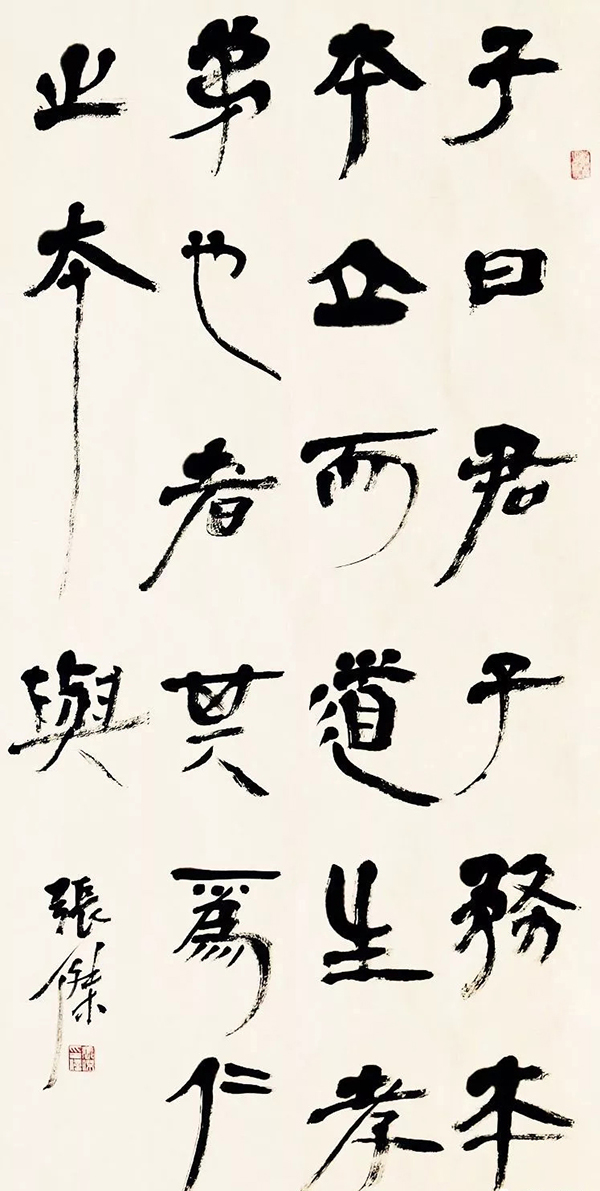 子曰君子務本
本立而道生孝
弟也者其爲仁
之本與
張傑